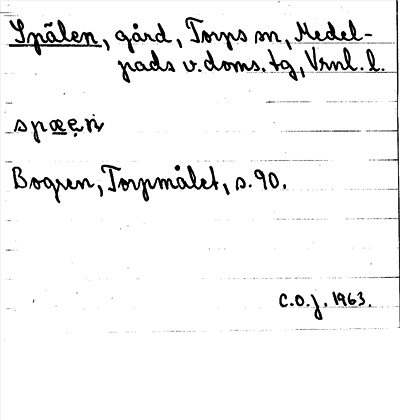 Spålen, gård, Torps sn, Medel-
pads v. doms. tg, Vrnl. l.
spæẹṅ
Bogren, Torpmålet, s. 90.
C.O.J. 1963.